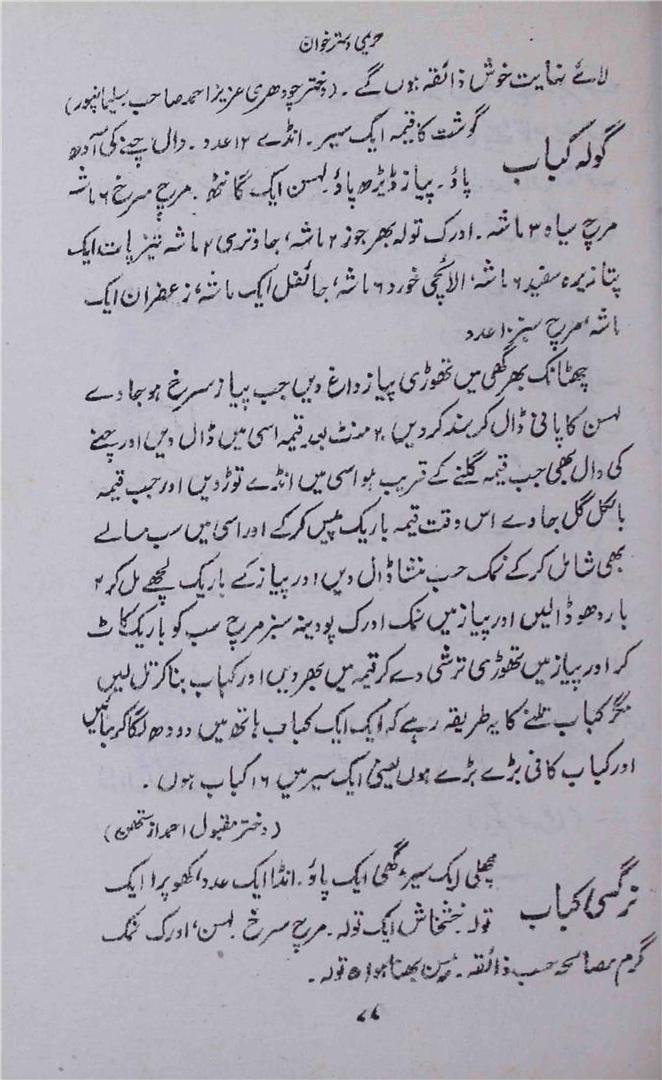 حریمی دسترخوان
لائے نہایت خوش ذائقہ ہوں گے۔ (دختر چودھری عزیز احمد صاحب سلیمانپور)
گولہ کباب
گوشت کا قیمہ ایک سیر۔ انڈے ۱۲ عدد۔ دال چنے کی آدھ
پاؤ۔ پیاز ڈیڑھ پاؤ۔ لہسن ایک گانٹھ۔ مرچ سرخ ۶ ماشہ
مرچ سیاہ ۳ ماشہ۔ ادرک تولہ بھر جوز ۲ ماشہ، جاوتری ۲ ماشہ تیز پات ایک
پتا زیرہ سفید ۶ ماشہ، الائچی خورد ۶ ماشہ، جائفل ایک ماشہ، زعفران ایک
ماشہ، مرچ سبز ۱۰ عدد
چھٹانک بھر گھی میں تھوڑی پیاز داغ دیں جب پیاز سرخ ہو جاوے
لہسن کا پانی ڈال کر بند کر دیں، ۲ منٹ بعد قیمہ اسی میں ڈال دیں اور چنے
کی دال بھی جب قیمہ گلنے کے قریب ہو اسی میں انڈے توڑ دیں اور جب قیمہ
بالکل گل جاوے اس وقت قیمہ باریک پیس کر کے اور اسی میں سب مسالے
بھی شامل کر کے نمک حسب منشا ڈال دیں اور پیاز کے باریک لچھے مل کر ۲
بار دھو ڈالیں اور پیاز میں نمک ادرک پودینہ سبز مرچ سب کو باریک کاٹ
کر اور پیاز میں تھوڑی ترشی دے کر قیمہ میں بھر دیں اور کباب بنا کر تل لیں
مگر کباب تلنے کا یہ طریقہ رہے کہ ایک ایک کباب ہاتھ میں دودھ لگا کر بنائیں
اور کباب کافی بڑے بڑے ہوں یعنی ایک سیر میں ۱۶ کباب ہوں۔
(دختر مقبول احمد از)
نرگسی کباب
مچھلی ایک سیر، گھی ایک پاؤ۔ انڈا ایک عدد، کھوپرا ایک
تولہ خشخاش ایک تولہ۔ مرچ سرخ لہسن، ادرک نمک
گرم مصالحہ حسب ذائقہ۔ بھنا ہوا ۵ تولہ۔
۷۸